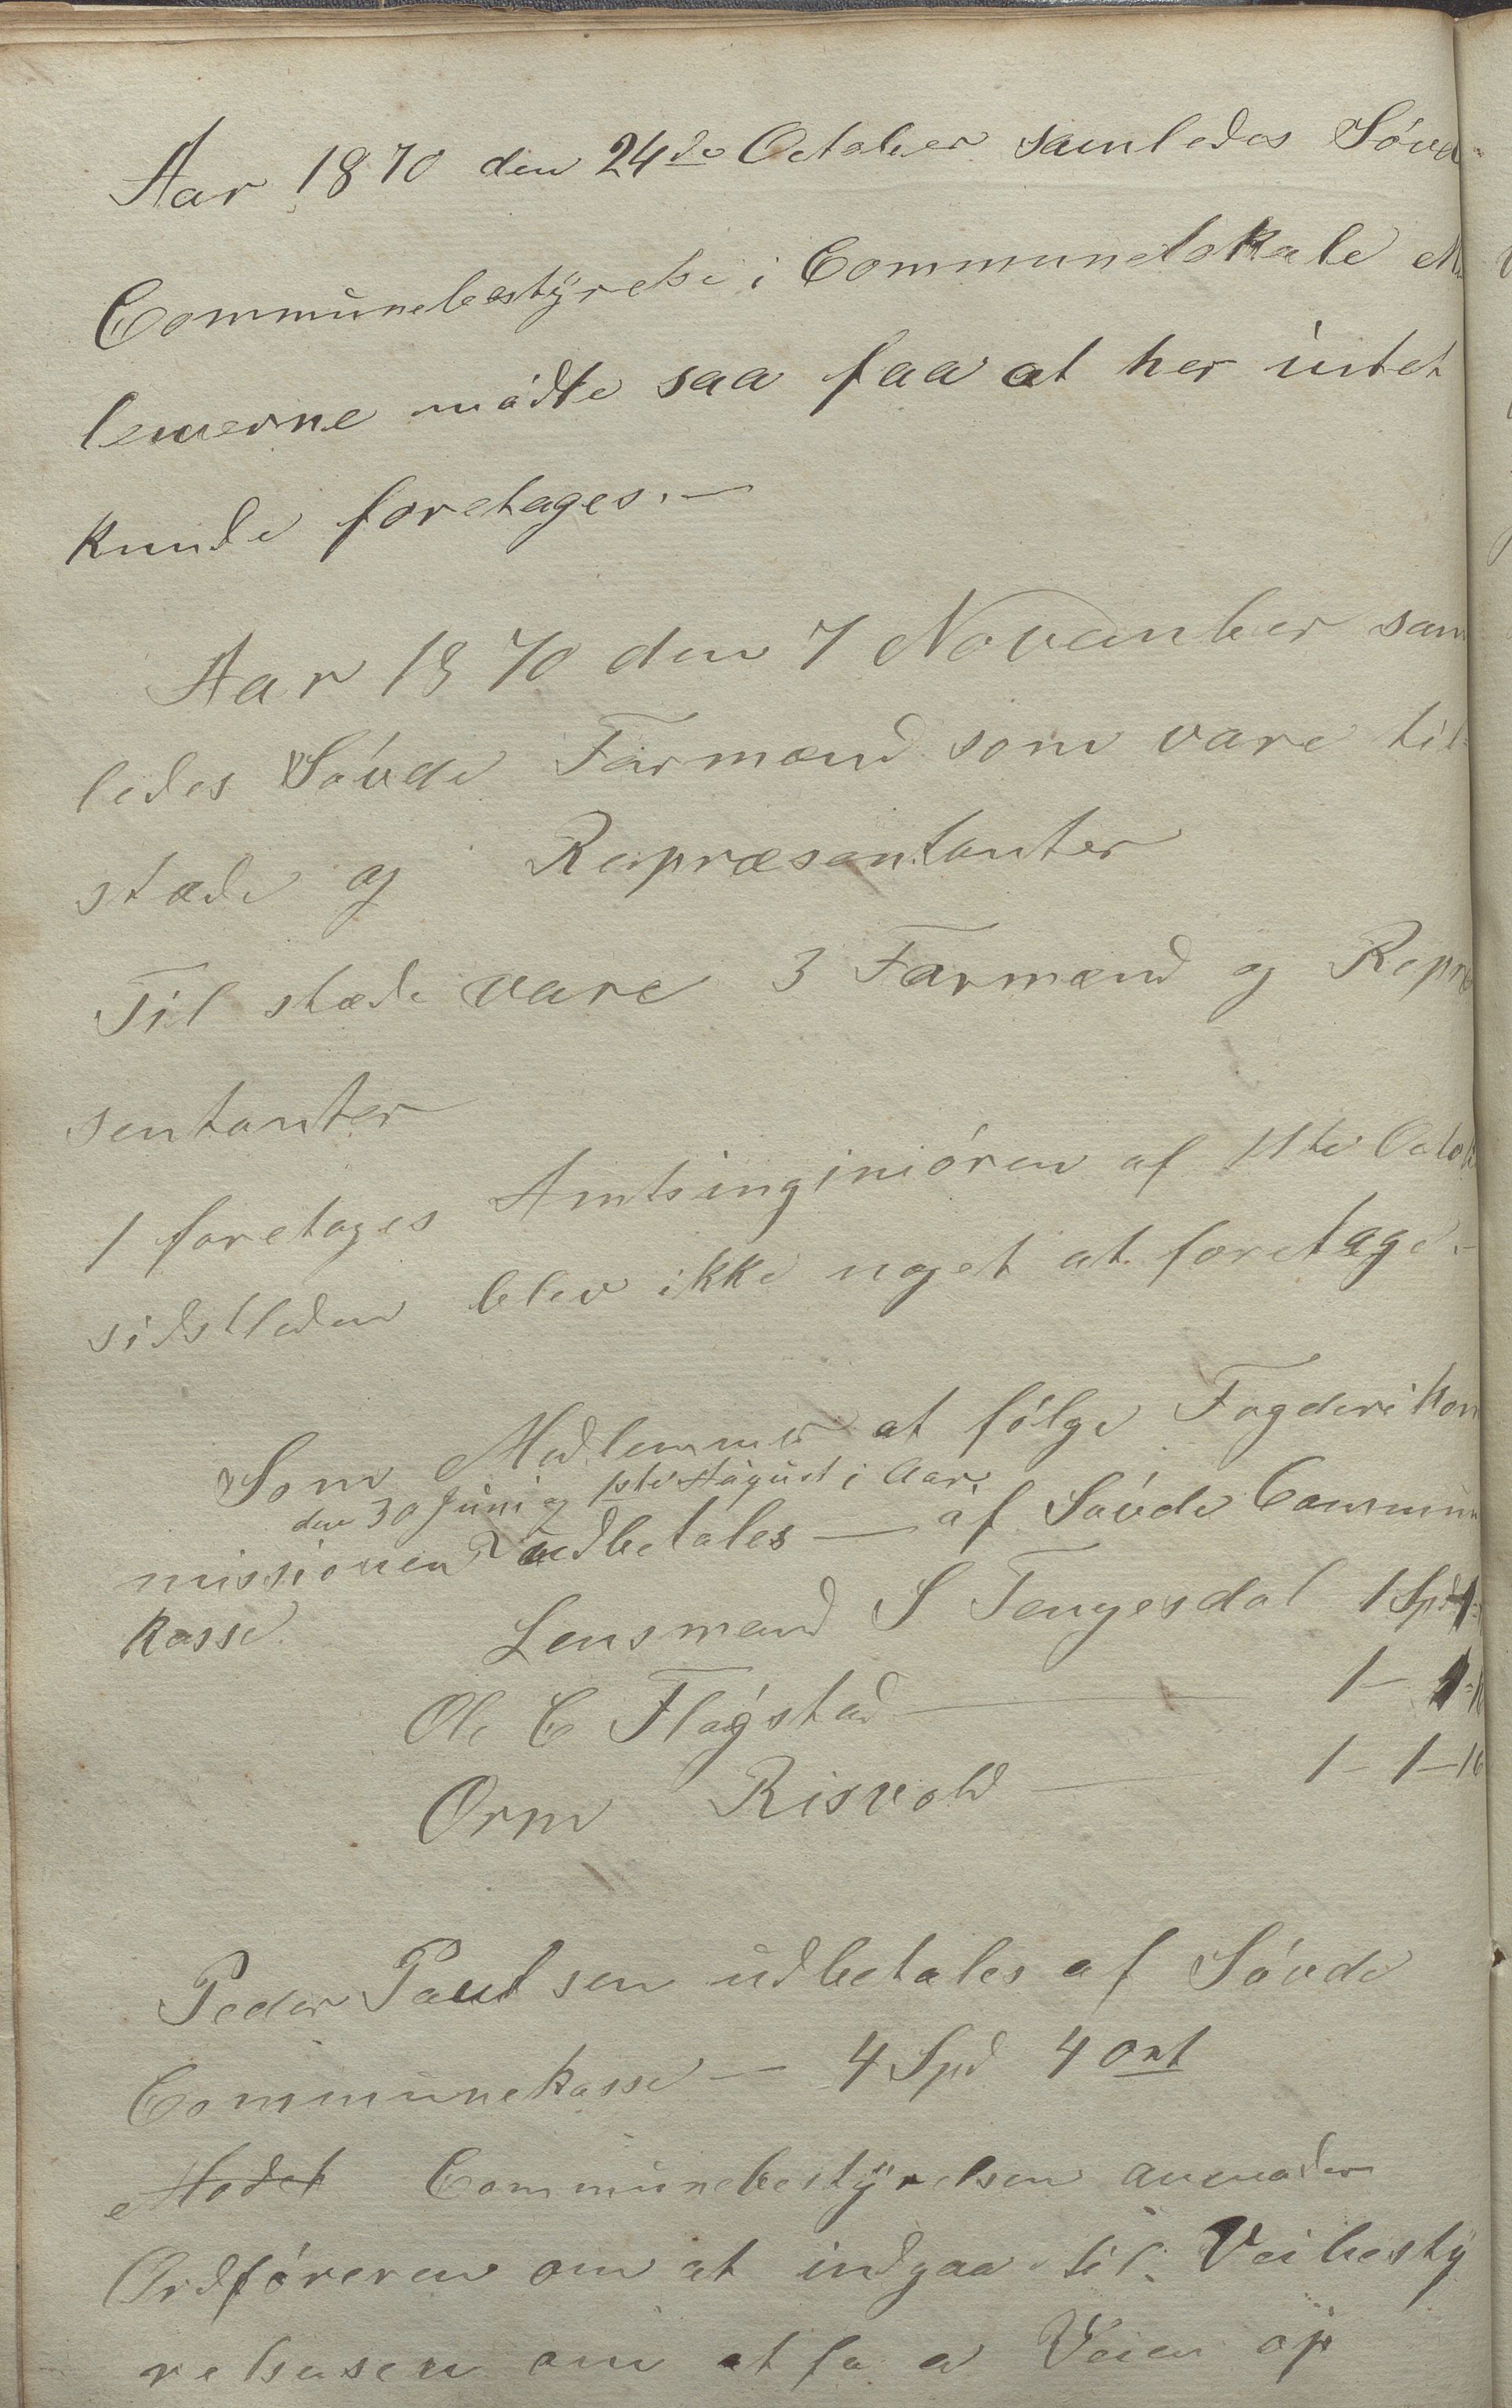 Aar 1870 den 24de October samledes Søvde
Communebestÿrelse i Communelokale Med
lemerne mødte saa faa at her intet
kunde foretages. —
Aar 1870 den 7 November sam
ledes Søvde Formænd som vare til
stæde og Repræsentanter
Til stæde vare 3 Formænd og Repræ
sentanter
1 foretoges Amtsinginiøren af 11te Octob
sidstleden blev ikke noget at foretage. —
Som Medlemmer at følge Fogderikom
den 30 Juni og 1ste August i Aar.
missionen udbetales — af Søvde Commune
kasse. Lensmand S Tengesdal 1 Spd 1
Ole C Fløgstad — 1 – 1 – 16
Orm Risvold — 1 – 1 – 16
Peder Paulsen udbetales af Søvde
Communekasse — 4 Spd 4 Ort
Mødet Communebestÿrelsen anmoder
Ordføreren om at indgaa til Veibestÿ
relsesen om at fa a Veien op